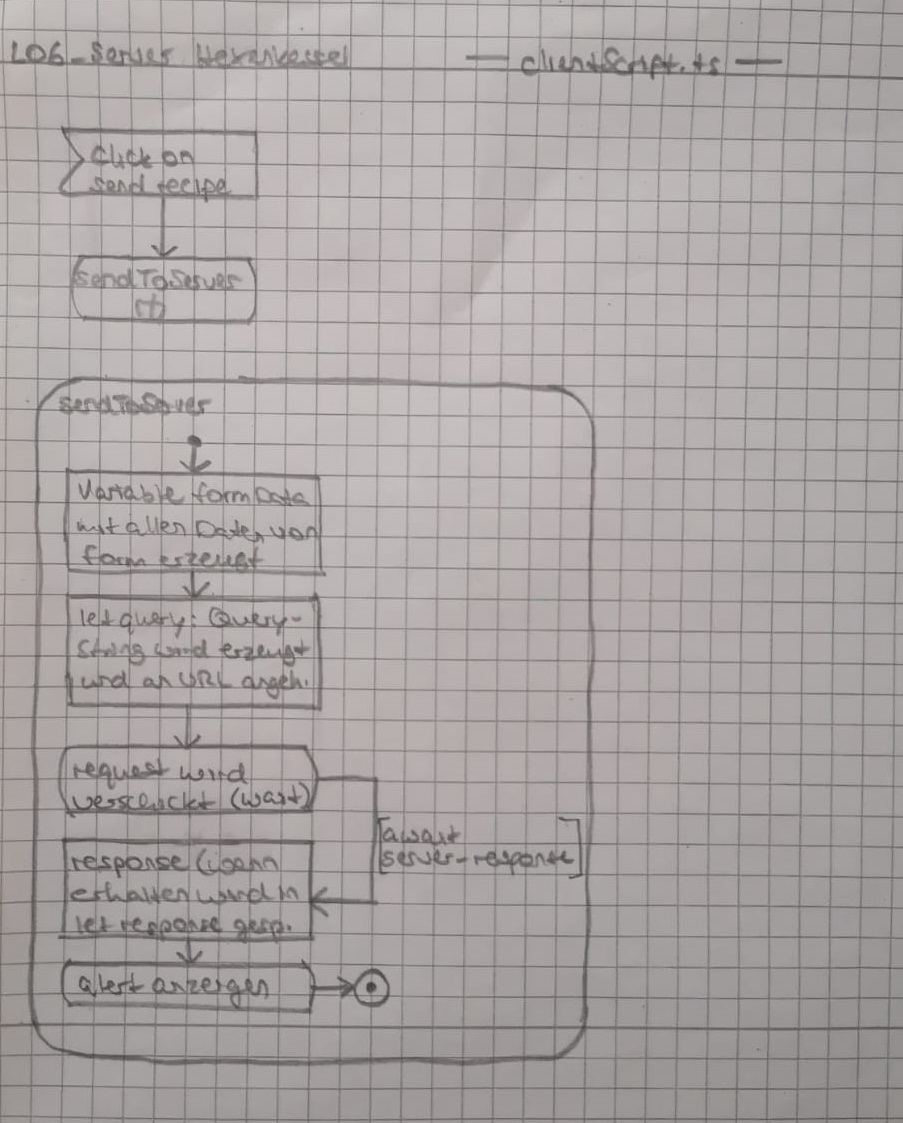 L06_Server Hexenkessel — clientScript.ts —
Click on
send recipe
sendToServer
sendToServer
Variable formData
mit allen Daten von
form erzeugt
let query: Query-
String wird erzeugt
und an URL angeh.
request wird
verschickt (wait)
[await
server-response]
response (wenn
erhalten wird in
let response gesp.
alert anzeigen